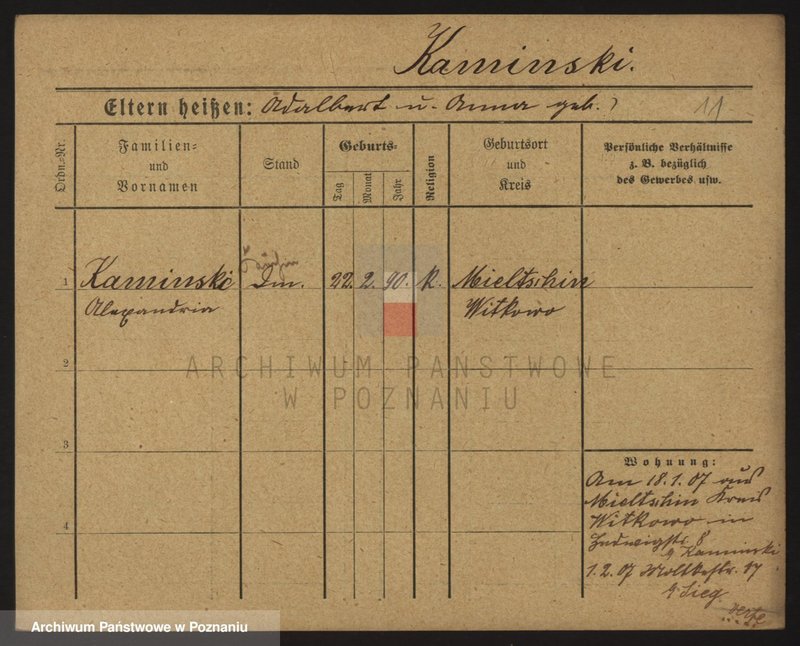 Kaminski.
Eltern heißen: Adalbert u. Anna geb. ?
11
Ordn.-Nr.
Familien- und Vornamen
Stand
Geburts-
Tag
Monat
Jahr
Religion
Geburtsort und Kreis
Persönliche Verhältnisse
z. B. bezüglich
des Gewerbes usw.
1 Kaminski Dm. 22. 2. 90. K. Mieltschin
Alexandria Witkowo
2
ARCHIWUM PAŃSTWOWE
W POZNANIU
3
4
Wohnung:
Am 18.1.07 aus
Mieltschin Kreis
Witkowo in
Hedwigstr 8
Kaminski
1.2.07 Moltkestr. 17
Sieg
Archiwum Państwowe w Poznaniu